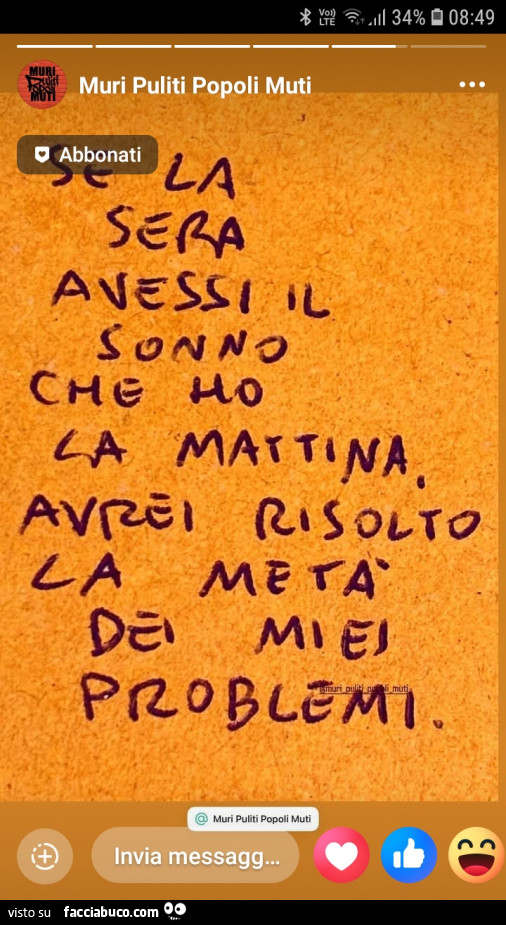 Vo)) LTE 34% 08:49
MURI Puliti POPOLI MUTI
Muri Puliti Popoli Muti
Abbonati
SE LA
SERA
AVESSI IL
SONNO
CHE HO
LA MATTINA,
AVREI RISOLTO
LA METÀ
DEI MIEI
PROBLEMI.
@muri_puliti_popoli_muti
@ Muri Puliti Popoli Muti
Invia messagg...
visto su facciabuco.com